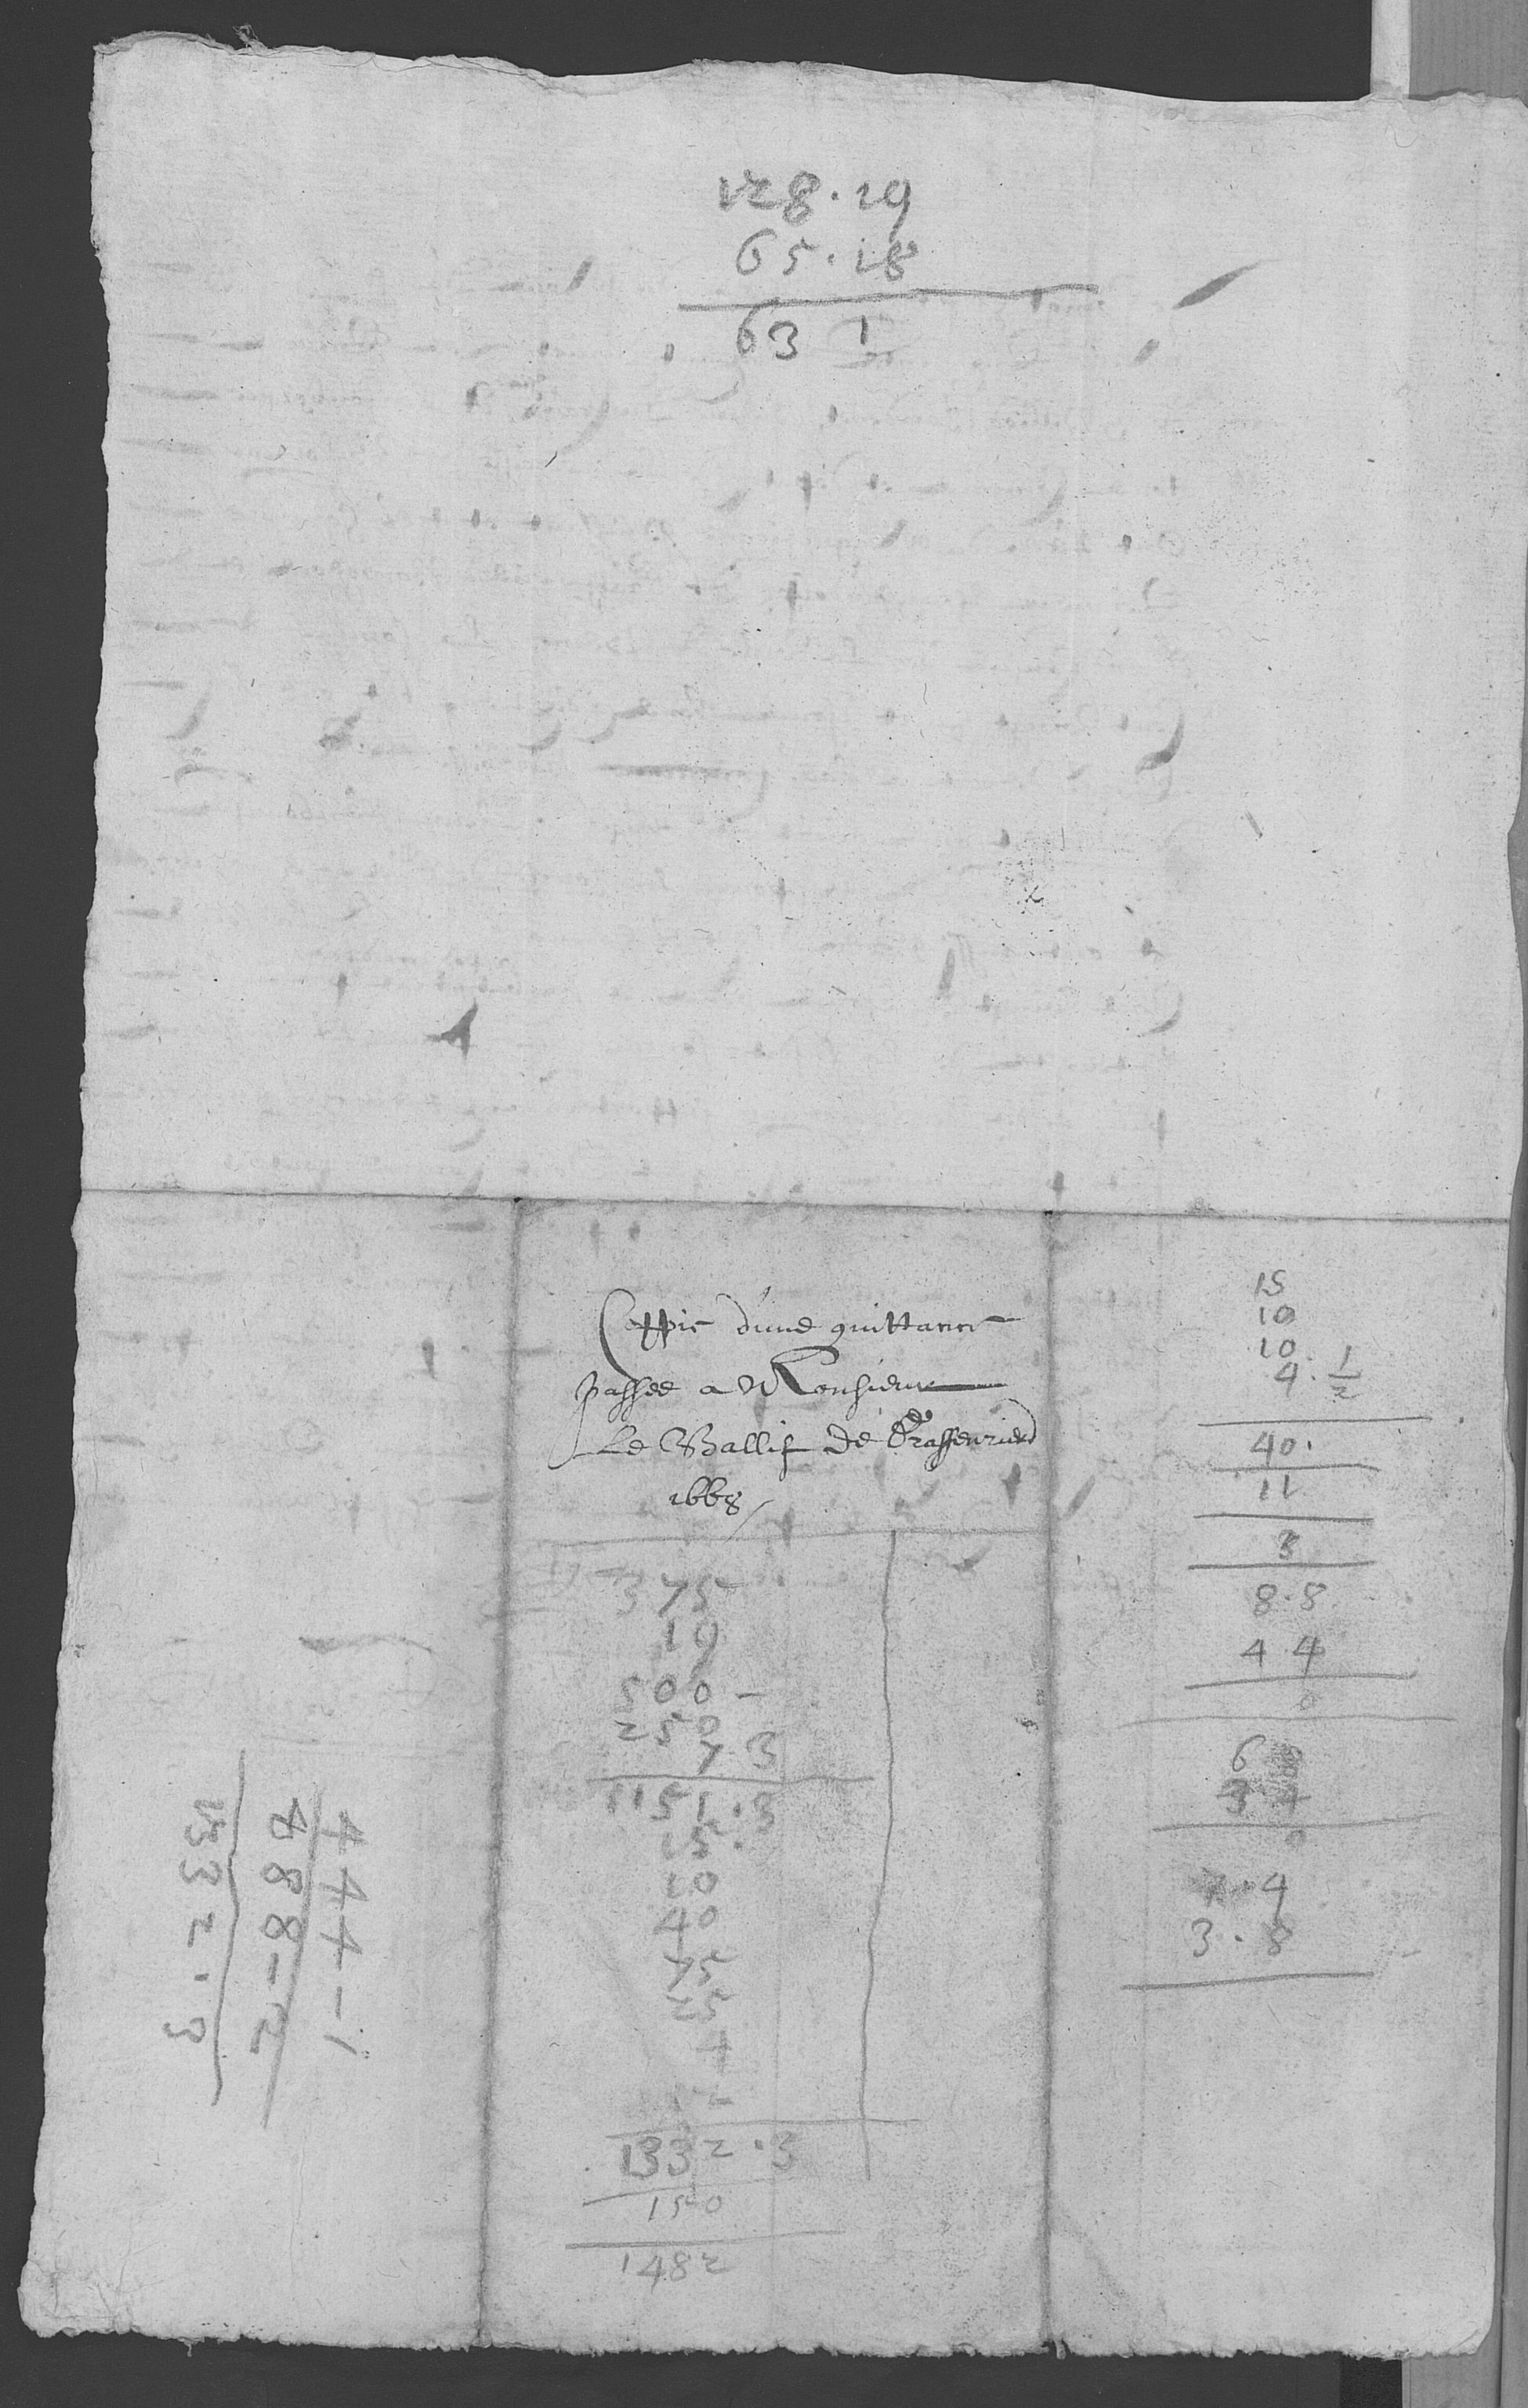 128.19
65.18
63 1
Coppie d'une quittance
passee a Monsieur
Le Ballif de
1668
375
19
500 -
250
7.3
1151.3
15.
10
40
75
25
1332.3
150
1482
15
10
10
4. 1/2
40.
11
3
8.8
4.4
0
6 8
3.4
0
7.4
3.8
444-1
888-2
1332.3